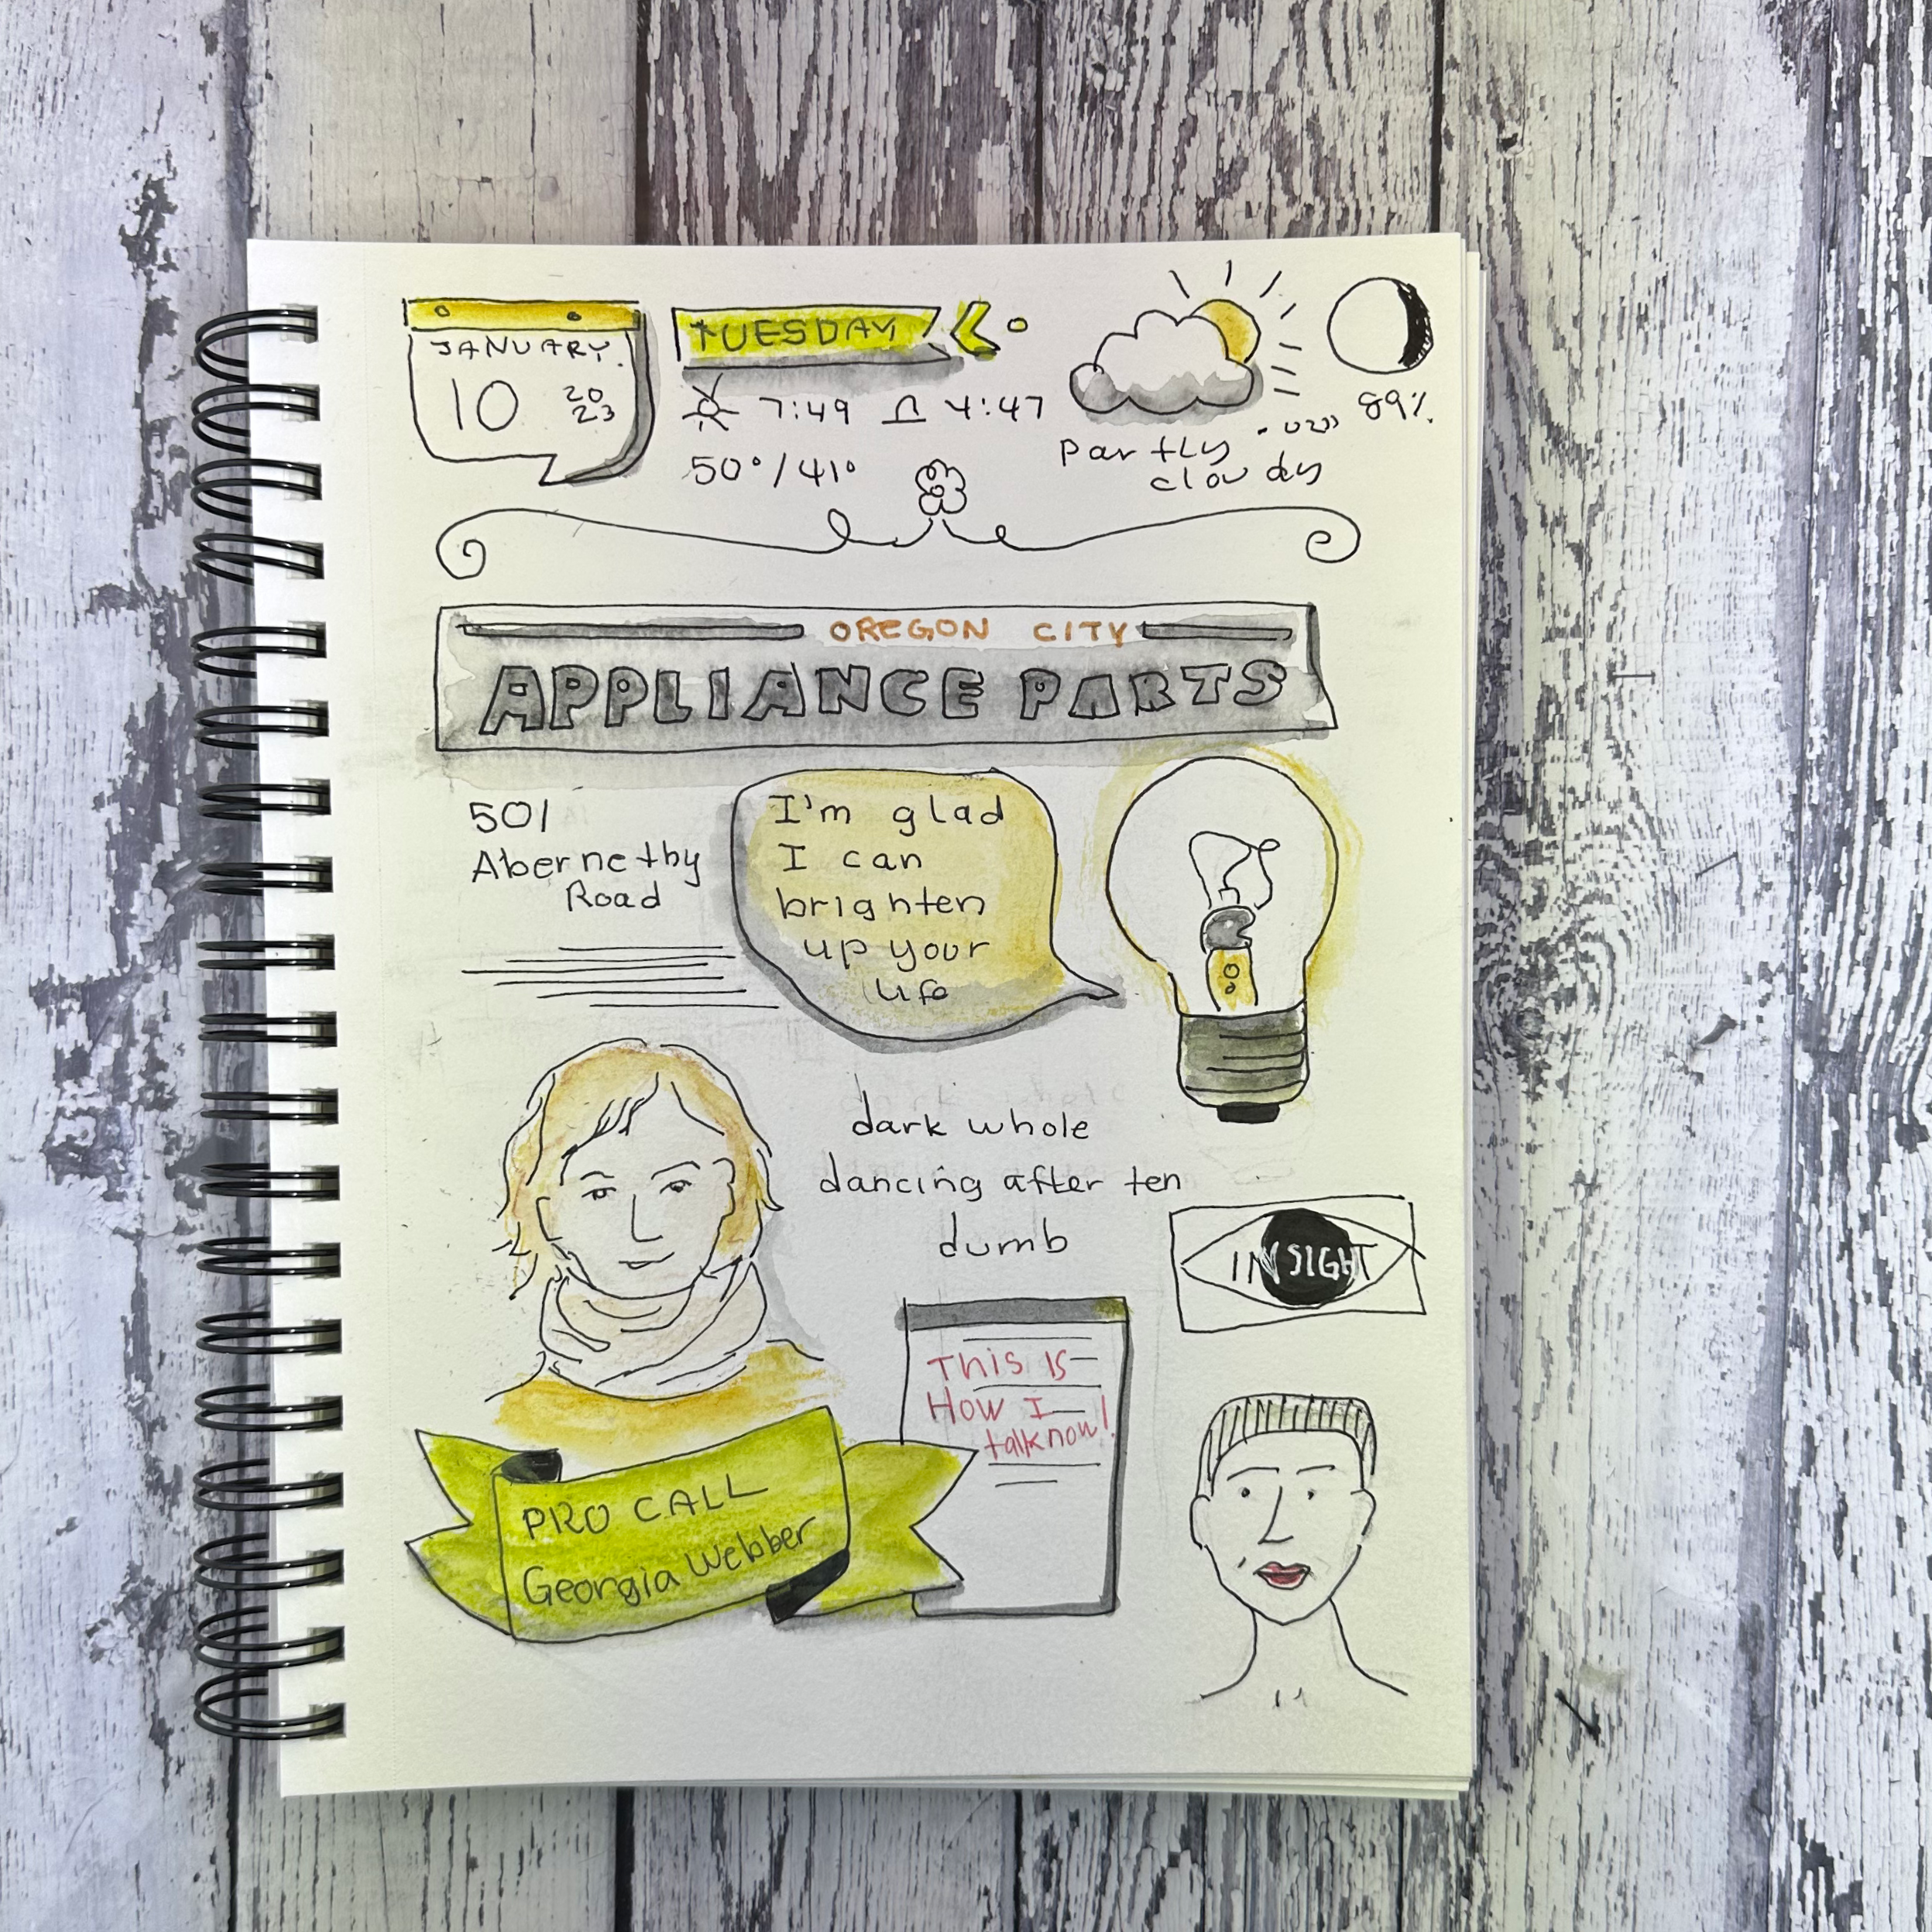 JANUARY
10
20
23
TUESDAY
7:49 4:47
50°/41°
Partly
cloudy
89%
OREGON CITY
APPLIANCE PARTS
501
Abernethy
Road
I'm glad
I can
brighten
up your
life
dark whole
dancing after ten
dumb
INSIGHT
This Is
How I
talk now!
PRO CALL
Georgia Webber